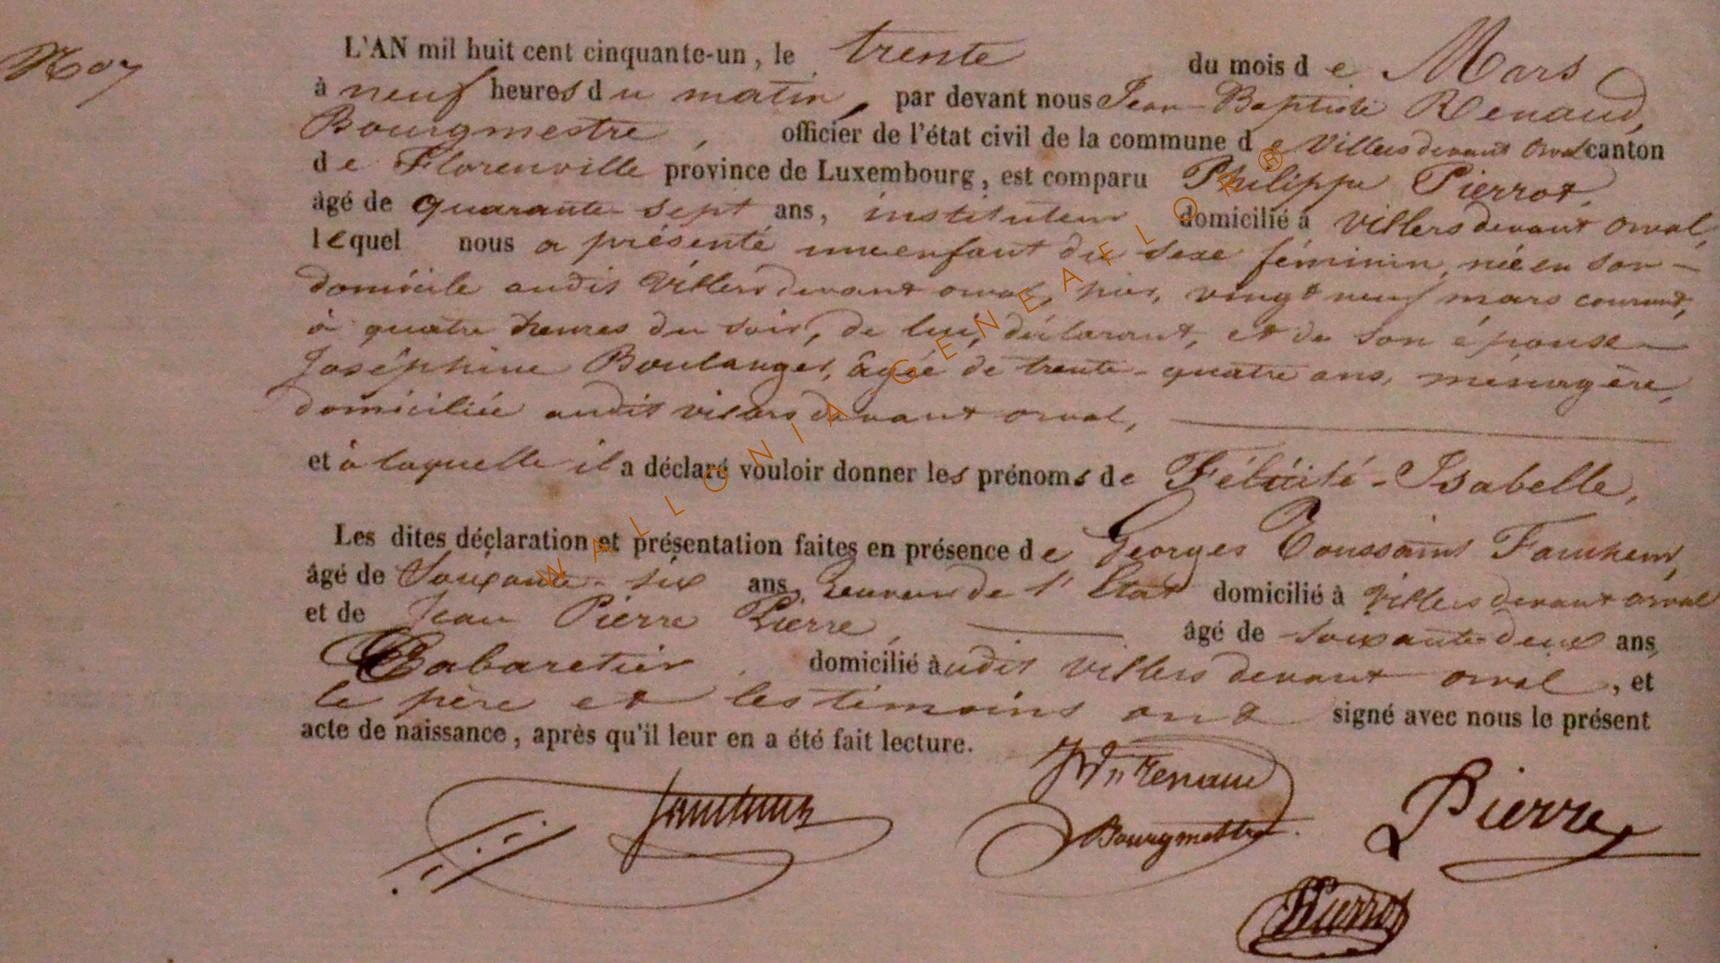 L'AN mil huit cent cinquante-un, le trente du mois de Mars
à neuf heures du matin, par devant nous Jean-Baptiste Renaud,
Bourgmestre, officier de l'état civil de la commune de Villers devant orval canton
de Florenville province de Luxembourg, est comparu Philippe Pierrot,
âgé de quarante-sept ans, instituteur domicilié à Villers devant orval,
lequel nous a présenté une enfant du sexe féminin, née en son
domicile audit Villers devant orval, hier, vingt neuf mars courant,
à quatre heures du soir, de lui, déclarant, et de son épouse
Joséphine Boulanger, âgée de trente-quatre ans, ménagère,
domiciliée audit villers devant orval,
et à laquelle il a déclaré vouloir donner les prénoms de Félicité-Isabelle,
Les dites déclaration et présentation faites en présence de Georges Toussaint
âgé de Soixante-six ans, de l'Etat domicilié à Villers devant orval
et de Jean Pierre Pierre, âgé de soixante-deux ans,
Cabaretier domicilié audit villers devant orval, et
le père et les témoins ont signé avec nous le présent
acte de naissance, après qu'il leur en a été fait lecture.
Renaud
Bourgmestre
Pierre
Pierrot
WALLONIA GENEALOR®